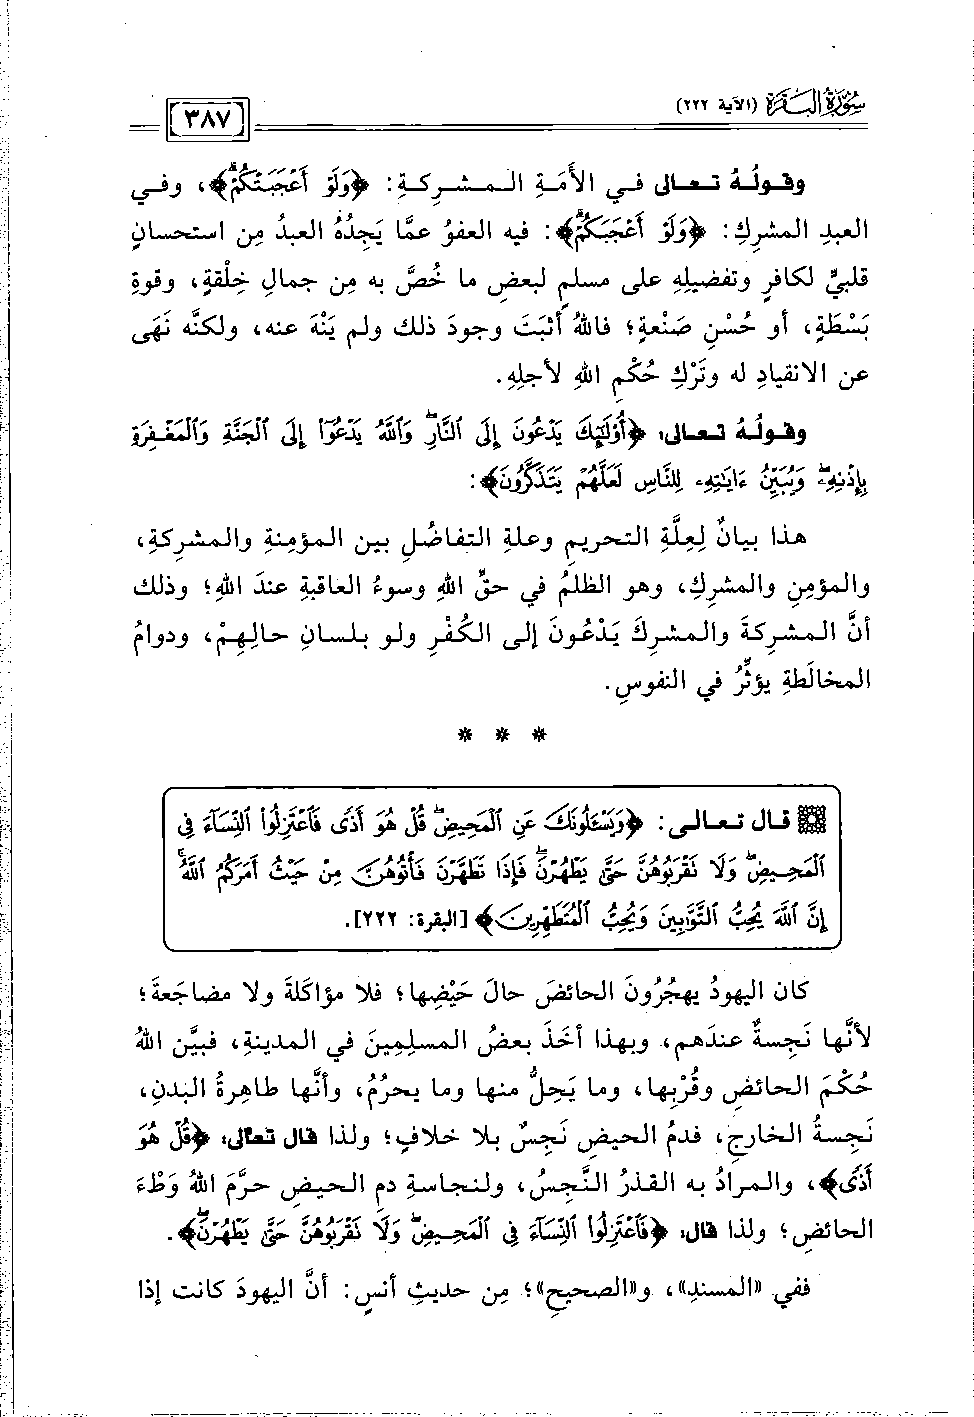 سورة البقرة (الآية ٢٢٢)
[٣٨٧]
وقولُهُ تعالى في الأَمَةِ المشركةِ: ﴿وَلَوْ أَعْجَبَتْكُمْ﴾، وفي
العبدِ المشركِ: ﴿وَلَوْ أَعْجَبَكُمْ﴾: فيه العفوُ عمَّا يَجِدُهُ العبدُ مِن استحسانٍ
قلبيٍّ لكافرٍ وتفضيلِهِ على مسلمٍ لبعضِ ما خُصَّ به مِن جمالِ خِلْقةٍ، وقوةِ
بَسْطَةٍ، أو حُسْنِ صَنْعةٍ؛ فاللهُ أثبَتَ وجودَ ذلك ولم يَنْهَ عنه، ولكنَّه نَهَى
عن الانقيادِ له وتَرْكِ حُكْمِ اللهِ لأجلِهِ.
وقولُهُ تعالى: ﴿أُوْلَٰٓئِكَ يَدْعُونَ إِلَى ٱلنَّارِۖ وَٱللَّهُ يَدْعُوٓاْ إِلَى ٱلْجَنَّةِ وَٱلْمَغْفِرَةِ
بِإِذْنِهِۦۖ وَيُبَيِّنُ ءَايَٰتِهِۦ لِلنَّاسِ لَعَلَّهُمْ يَتَذَكَّرُونَ﴾:
هذا بيانٌ لِعِلَّةِ التحريمِ وعلةِ التفاضُلِ بين المؤمنةِ والمشركةِ،
والمؤمنِ والمشركِ، وهو الظلمُ في حقِّ اللهِ وسوءُ العاقبةِ عندَ اللهِ؛ وذلك
أنَّ المشركةَ والمشركَ يَدْعُونَ إلى الكُفْرِ ولو بلسانِ حالِهِمْ، ودوامُ
المخالَطةِ يؤثِّرُ في النفوسِ.
* * *
قال تعالى: ﴿وَيَسْـَٔلُونَكَ عَنِ ٱلْمَحِيضِۖ قُلْ هُوَ أَذًى فَٱعْتَزِلُواْ ٱلنِّسَآءَ فِى
ٱلْمَحِيضِۖ وَلَا تَقْرَبُوهُنَّ حَتَّىٰ يَطْهُرْنَۖ فَإِذَا تَطَهَّرْنَ فَأْتُوهُنَّ مِنْ حَيْثُ أَمَرَكُمُ ٱللَّهُۚ
إِنَّ ٱللَّهَ يُحِبُّ ٱلتَّوَّٰبِينَ وَيُحِبُّ ٱلْمُتَطَهِّرِينَ﴾ [البقرة: ٢٢٢].
كان اليهودُ يهجُرُونَ الحائضَ حالَ حَيْضِها؛ فلا مؤاكَلةَ ولا مضاجَعةَ؛
لأنَّها نَجِسةٌ عندَهم، وبهذا أخَذَ بعضُ المسلِمِينَ في المدينةِ، فبيَّن اللهُ
حُكْمَ الحائضِ وقُرْبِها، وما يَحِلُّ منها وما يحرُمُ، وأنَّها طاهرةُ البدنِ،
نَجِسةُ الخارجِ، فدمُ الحيضِ نَجِسٌ بلا خلافٍ؛ ولذا قال تعالى: ﴿قُلْ هُوَ
أَذًى﴾، والمرادُ به القذرُ النَّجِسُ، ولنجاسةِ دمِ الحيضِ حرَّم اللهُ وَطْءَ
الحائضِ؛ ولذا قال: ﴿فَٱعْتَزِلُواْ ٱلنِّسَآءَ فِى ٱلْمَحِيضِۖ وَلَا تَقْرَبُوهُنَّ حَتَّىٰ يَطْهُرْنَۖ﴾.
ففي «المسندِ»، و«الصحيحِ»؛ مِن حديثِ أنسٍ: أنَّ اليهودَ كانت إذا